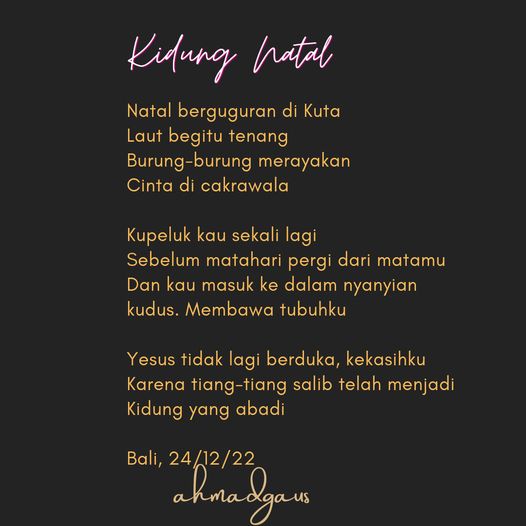 Kidung Natal
Natal berguguran di Kuta
Laut begitu tenang
Burung-burung merayakan
Cinta di cakrawala
Kupeluk kau sekali lagi
Sebelum matahari pergi dari matamu
Dan kau masuk ke dalam nyanyian
kudus. Membawa tubuhku
Yesus tidak lagi berduka, kekasihku
Karena tiang-tiang salib telah menjadi
Kidung yang abadi
Bali, 24/12/22
ahmadgaus